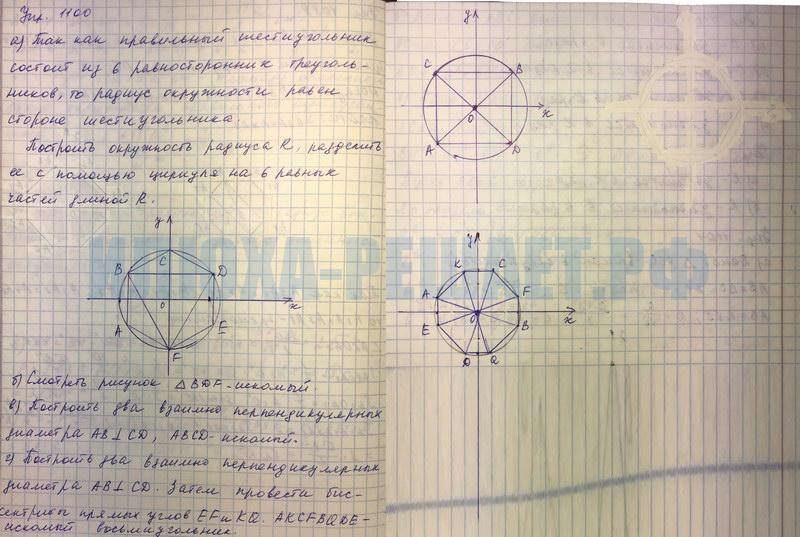 Упр. 1100
а) Так как правильный шестиугольник
состоит из 6 равносторонник треуголь-
ников, то радиус окружности равен
стороне шестиугольника.
Построить окружность радиуса R, разделить
ее с помощью циркуля на 6 равных
частей длиной R.
y
C
B
D
O
x
A
E
F
б) Смотреть рисунок △BDF - искомый.
в) Построить два взаимно перпендикулярных
диаметра AB⊥CD, ABCD - искомый.
г) Построить два взаимно перпендикулярных
диаметра AB⊥CD. Затем провести бис-
сектрисы прямых углов EF и KQ. AKCFBQDE -
искомый восьмиугольник.
y
C
B
O
x
A
D
y
K
C
A
F
O
x
E
B
D
Q
ИЛЮХА-РЕШАЕТ.РФ